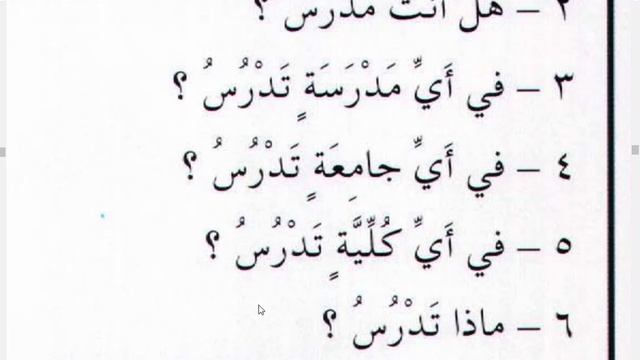 ٢ – هل أنت مدرس ؟
٣ – في أَيِّ مَدْرَسَةٍ تَدْرُسُ ؟
٤ – في أَيِّ جامِعَةٍ تَدْرُسُ ؟
٥ – في أَيِّ كُلِّيَّةٍ تَدْرُسُ ؟
٦ – ماذا تَدْرُسُ ؟